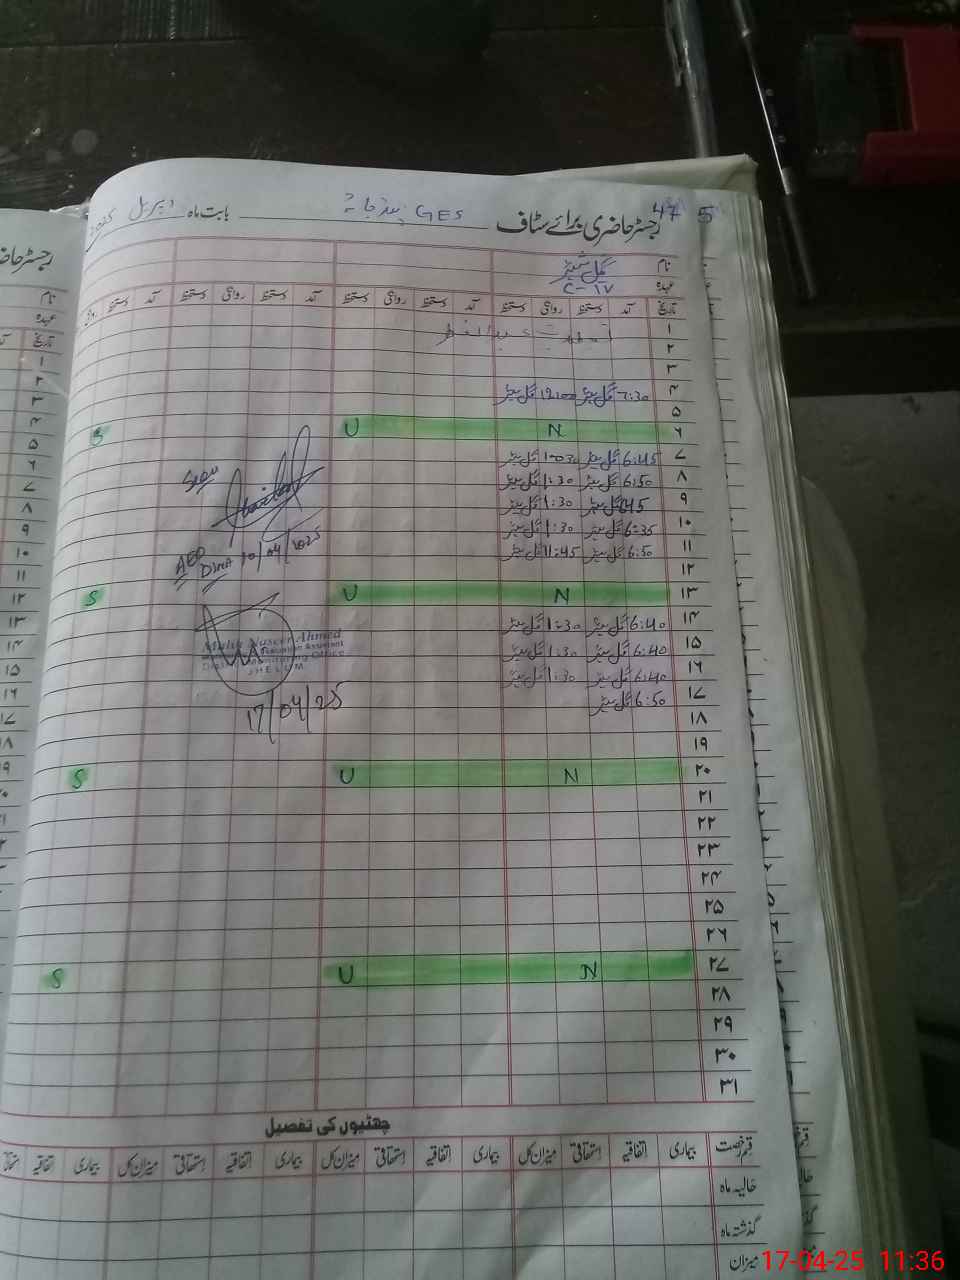 رجسٹر حاضری برائے سٹاف 47 5
GES پنڈ جاٹہ بابت ماہ اپریل 2025
نام گل شیر
عہدہ C-IV
تاریخ آمد دستخط روانگی دستخط آمد دستخط روانگی دستخط آمد دستخط روانگی دستخط آمد
۱ تعطیلات عیدالفطر
۲
۳
۴ 7:30 گل شیر 12:00 گل شیر
۵
۶ S U N
۷ 6:45 گل شیر 1:30 گل شیر
۸ 6:50 گل شیر 1:30 گل شیر
۹ 6:45 گل شیر 1:30 گل شیر
۱۰ 6:35 گل شیر 1:30 گل شیر
۱۱ 6:50 گل شیر 11:45 گل شیر
۱۲
۱۳ S U N
۱۴ 6:40 گل شیر 1:30 گل شیر
۱۵ 6:40 گل شیر 1:30 گل شیر
۱۶ 6:40 گل شیر 1:30 گل شیر
۱۷ 6:50 گل شیر
۱۸
۱۹
۲۰ S U N
۲۱
۲۲
۲۳
۲۴
۲۵
۲۶
۲۷ S U N
۲۸
۲۹
۳۰
۳۱
Seen
AEO
Dina 10/04/2025
Naseer Ahmed
Monitoring Office
JHELUM
17/04/25
چھٹیوں کی تفصیل
قسم رخصت بیماری اتفاقیہ استحقاقی میزان کل بیماری اتفاقیہ استحقاقی میزان کل بیماری اتفاقیہ استحقاقی میزان کل بیماری اتفاقیہ
حالیہ ماہ
گذشتہ ماہ
میزان
17-04-25 11:36